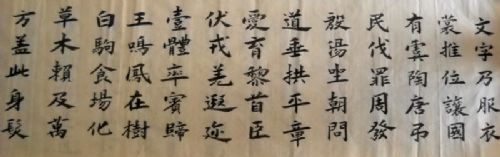 文字乃服衣
裳推位讓國
有虞陶唐吊
民伐罪周發
殷湯坐朝問
道垂拱平章
愛育黎首臣
伏戎羌遐迩
壹體率賓歸
王鳴鳳在樹
白駒食場化
草木賴及萬
方盖此身髮